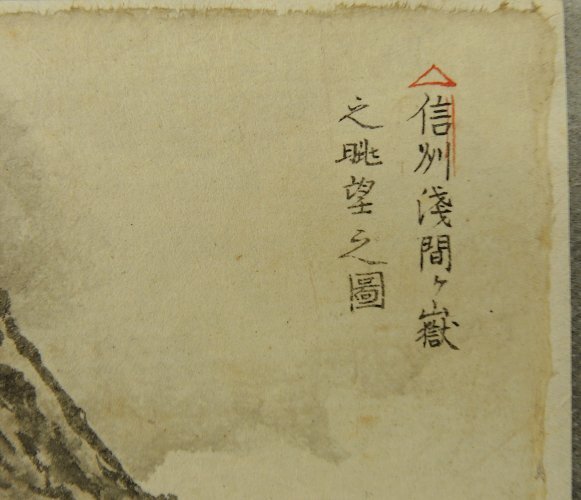 信州淺間ヶ嶽
之眺望之圖